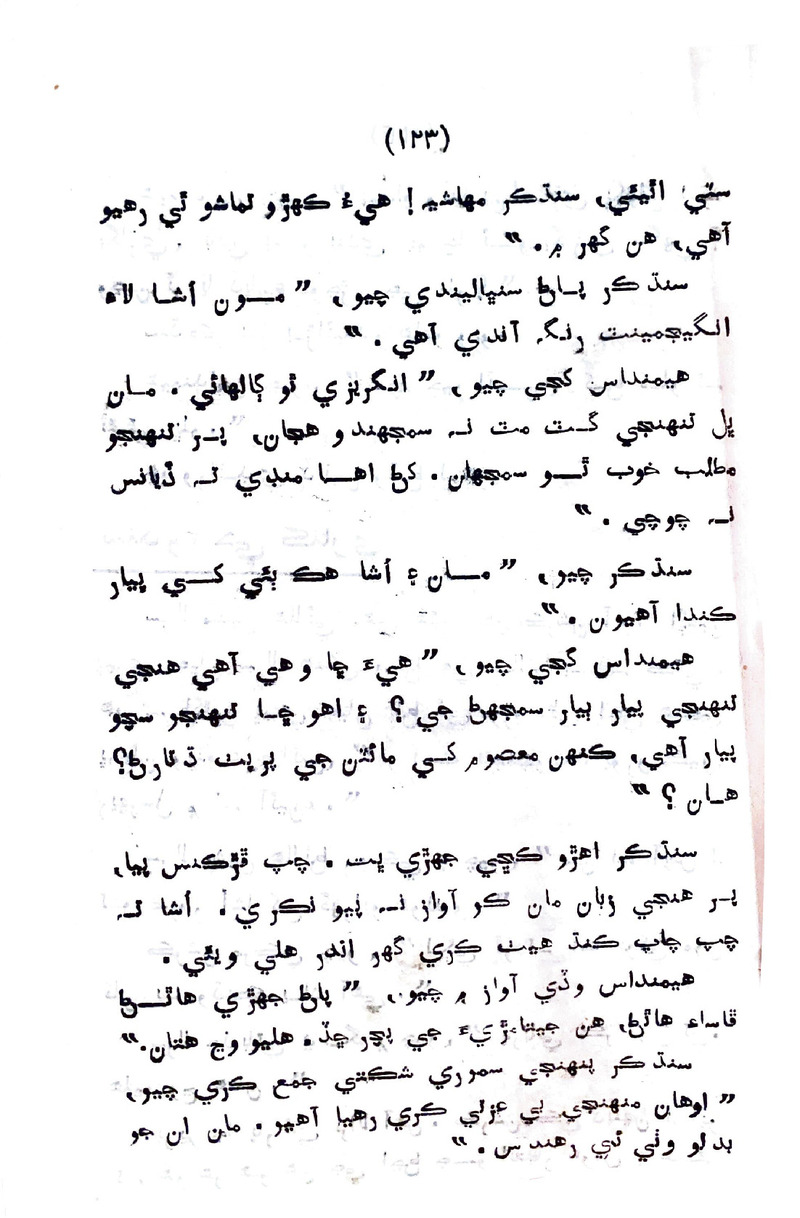 (۱۲۳)
سٽي اٿيئي، سنڌڪر مهاشيه! هيءُ ڪهڙو تماشو ٿي رهيو
آهي، هن گهر ۾. “
سنڌڪر پاڻ سنڀاليندي چيو، ” مون اُشا لاءِ
انگيجمينٽ رنگ آندي آهي. “
هيمنداس گجي چيو، ” انگريزي ٿو ڳالهائي. مان
ڀل تنهنجي گٽ مٽ نه سمجهندو هجان، پر تنهنجو
مطلب خوب ٿو سمجهان. کڻ اها منڊي ته ڏيانس
نه چوچي. “
سنڌڪر چيو، ” مان ۽ اُشا هڪ ٻئي کي پيار
ڪندا آهيون. “
هيمنداس گجي چيو، ” هيءَ ڇا وهي آهي هنجي
تنهنجي پيار ٻيار سمجهڻ جي؟ ۽ اهو ڇا تنهنجو سچو
پيار آهي، ڪنهن معصوم کي مائٽن جي پريٺ ڌتارڻ؟
هان؟ “
سنڌڪر اهڙو ڪچي جهڙي ڀت. چپ ڦڙڪنس پيا،
پر هنجي زبان مان ڪو آواز نه پيو نڪري. اُشا ته
چپ چاپ ڪنڌ هيٺ ڪري گهر اندر هلي ويئي.
هيمنداس وڏي آواز ۾ چيو، ” پاڻ جهڙي هاڻ
ڦاساءِ هاڻ، هن جيتامڙيءَ جي پچر ڇڏ. هليو وڃ هتان. “
سنڌڪر پنهنجي سموري شڪتي جمع ڪري چيو،
” اوهان منهنجي بي عزتي ڪري رهيا آهيو. مان ان جو
بدلو وٺي ئي رهندس. “